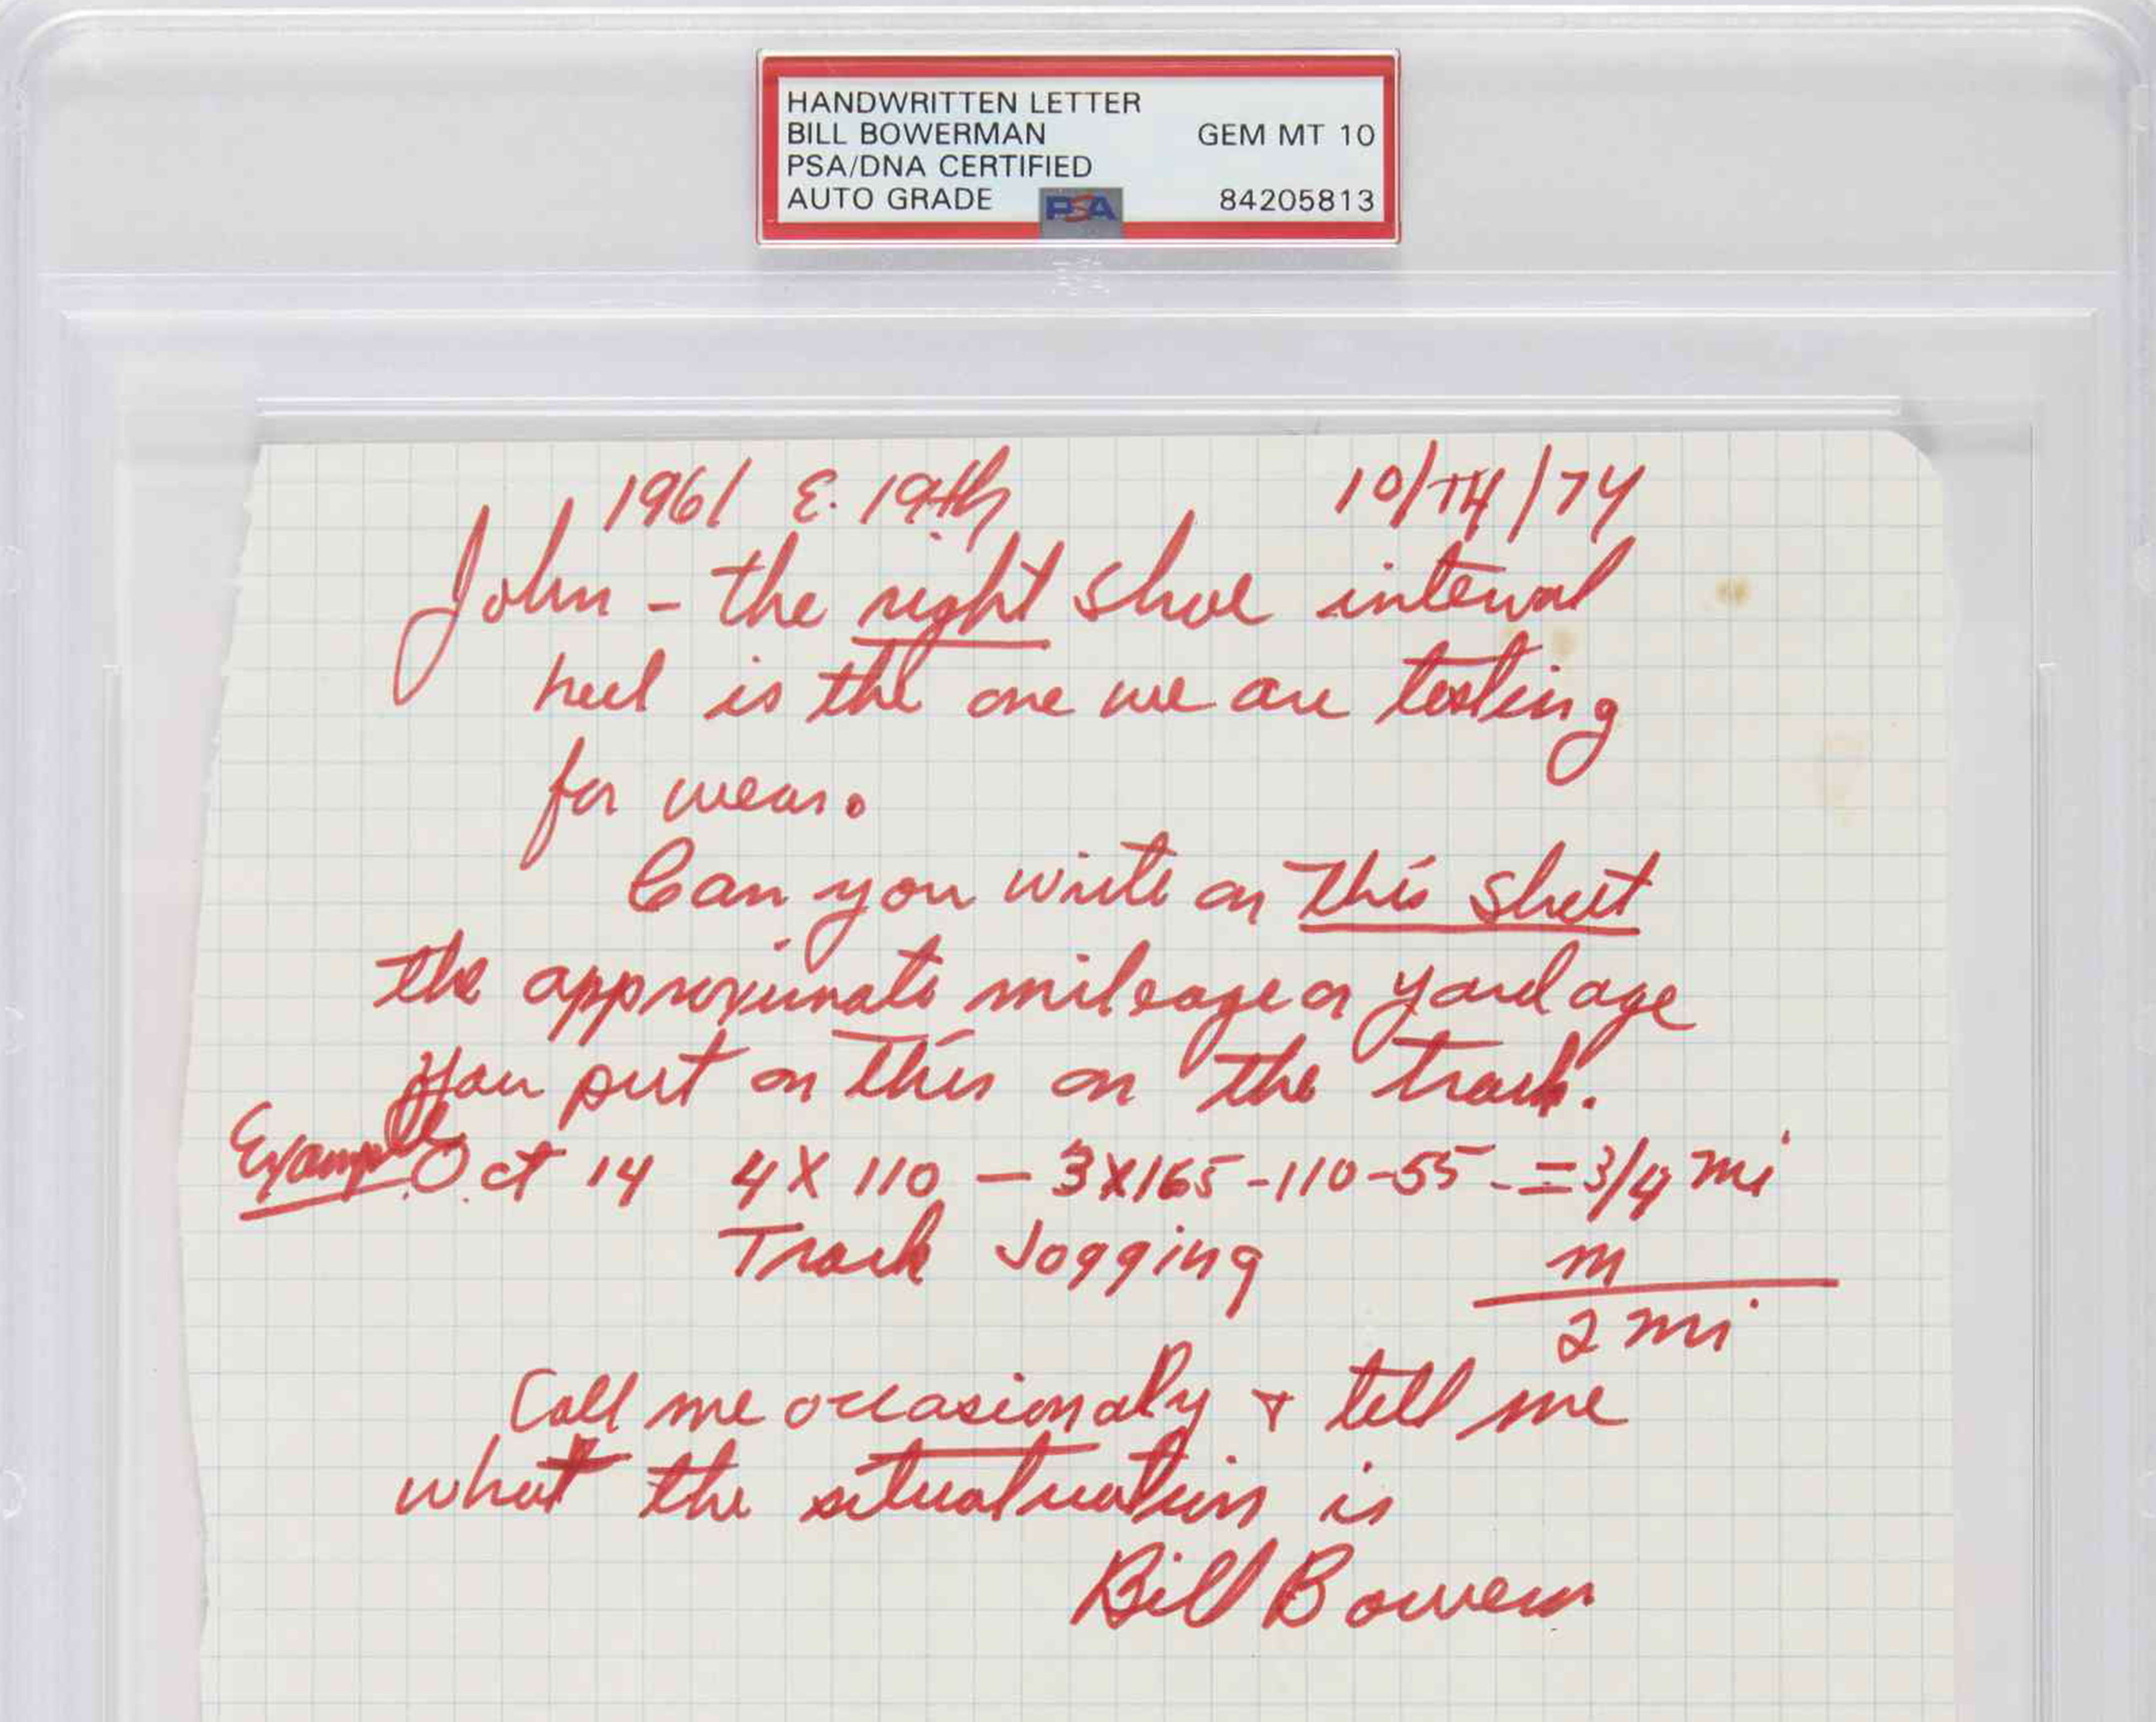 HANDWRITTEN LETTER
BILL BOWERMAN GEM MT 10
PSA/DNA CERTIFIED
AUTO GRADE PSA 84205813
1961 E. 19th 10/14/74
John - the right shoe interval
heel is the one we are testing
for wear.
Can you write on this sheet
the approximate mileage or yardage
you put on this on the track.
Example Oct 14 4X110 - 3X165-110-55 - = 3/4 mi
Track Jogging m
2 mi
Call me occasionaly + tell me
what the situatuation is
Bill Bowerm